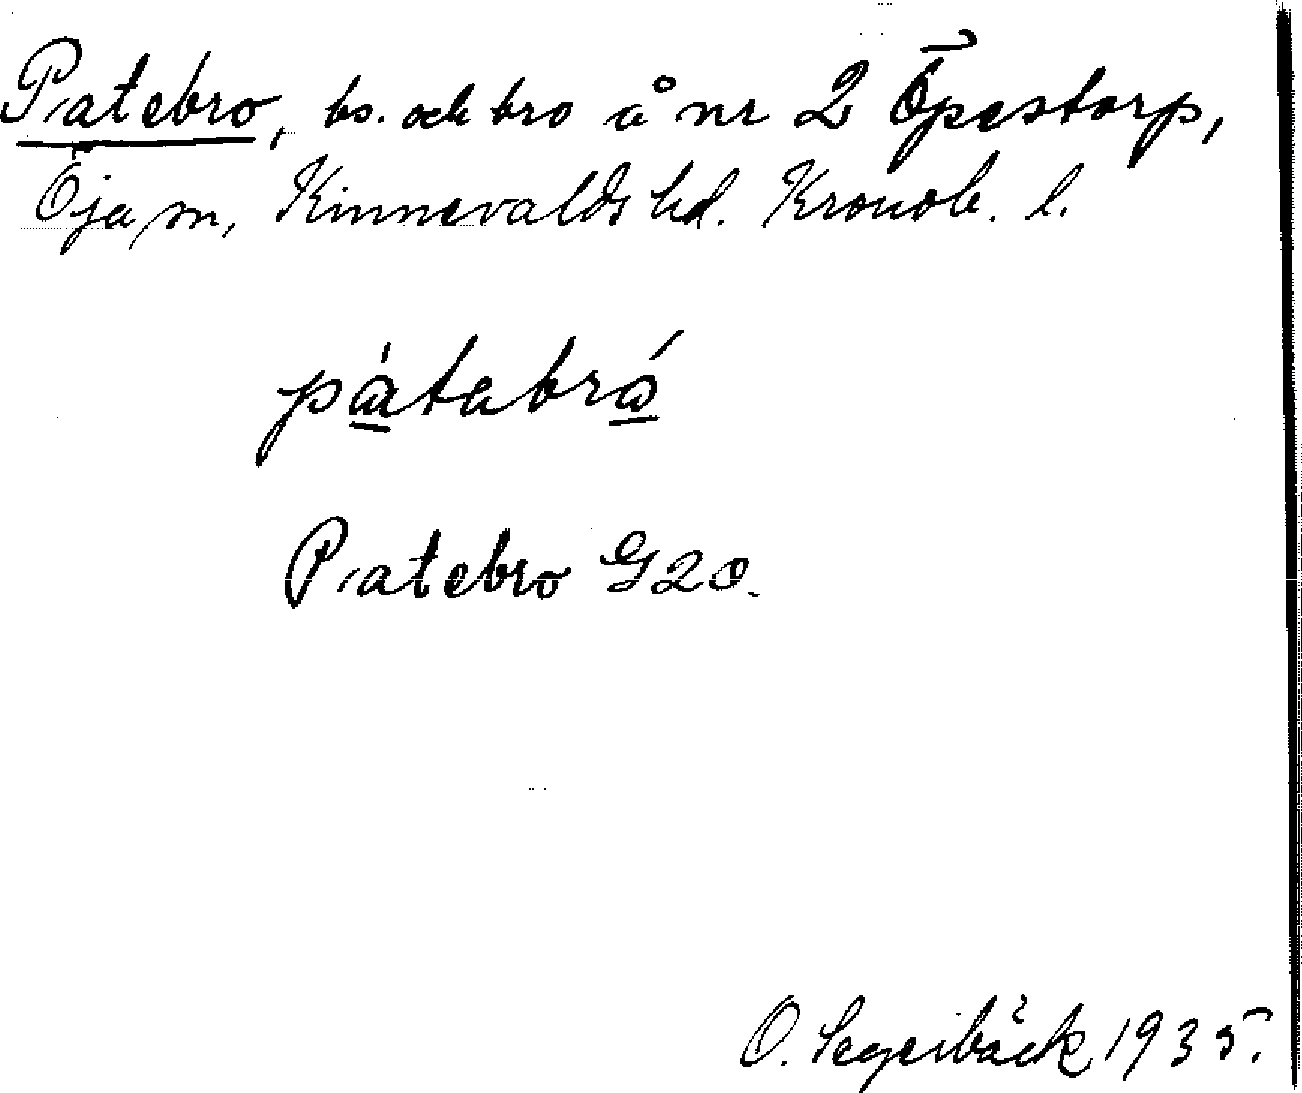 Patebro, bs. och bro å nr 2 Öpestorp,
Öja sn, Kinnevalds hd. Kronob. l.
pátabró
Patebro G20.
O. Segerbäck 1935.